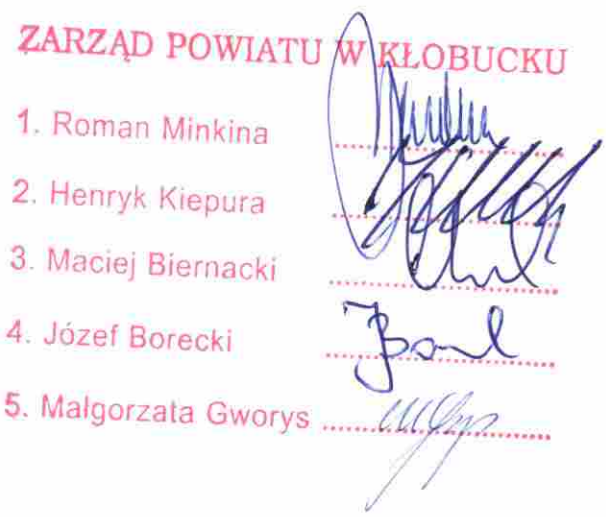 ZARZĄD POWIATU W KŁOBUCKU
1. Roman Minkina
2. Henryk Kiepura
3. Maciej Biernacki
4. Józef Borecki
5. Małgorzata Gworys